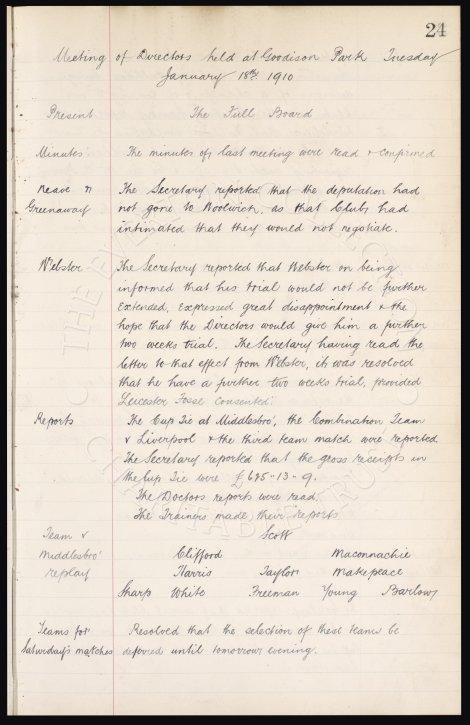 24
Meeting of Directors held at Goodison Park Tuesday
January 18th 1910
Present The Full Board
Minutes The minutes of last meeting were read & confirmed
& The Secretary reported that the deputation had
Greenaway not gone to Woolwich, as that Club had
intimated that they would not negotiate.
Webster The Secretary reported that Webster on being
informed that his trial would not be further
extended, expressed great disappointment & the
hope that the Directors would give him a further
two weeks trial. The Secretary having read the
letter to that effect from Webster, it was resolved
that he have a further two weeks trial, provided
Leicester Fosse consented.
Reports The Cup Tie at Middlesbro', the Combination Team
v Liverpool & the third team match were reported.
The Secretary reported that the gross receipts in
the Cup Tie were £685-13-9.
The Doctors reports were read.
The Trainers made their reports
Team v Scott
Middlesbro' Clifford Maconnachie
replay Harris Taylor Makepeace
Sharp White Freeman Young Barlow
Teams for Resolved that the selection of these teams be
Saturday's matches deferred until tomorrow evening.
THE EVERTON
COLLECTION
CHARITABLE TRUST